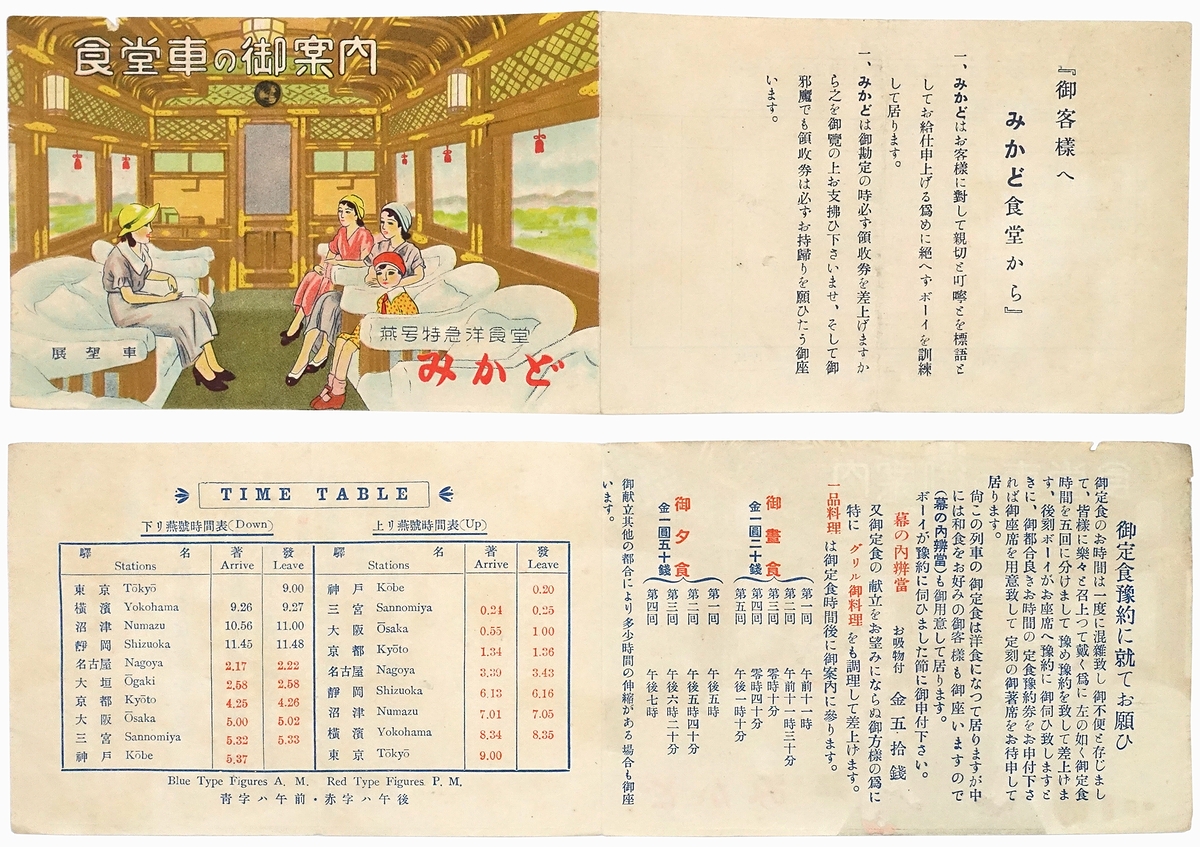 食堂車の御案内
展望車
燕号特急洋食堂
みかど
『御客樣へ
みかど食堂から』
一、みかどはお客樣に對して親切と叮嚀とを標語と
してお給仕申上げる爲めに絕へずボーイを訓練
して居ります。
一、みかどは御勘定の時必ず領收券を差上げますか
ら之を御覽の上お支拂ひ下さいませ、そして御
邪魔でも領收券は必ずお持歸りを願ひたう御座
います。
TIME TABLE
下リ燕號時間表(Down)
驛名 著 發
Stations Arrive Leave
東京 Tōkyō 9.00
橫濱 Yokohama 9.26 9.27
沼津 Numazu 10.56 11.00
靜岡 Shizuoka 11.45 11.48
名古屋 Nagoya 2.17 2.22
大垣 Ōgaki 2.58 2.58
京都 Kyōto 4.25 4.26
大阪 Ōsaka 5.00 5.02
三宮 Sannomiya 5.32 5.33
神戶 Kōbe 5.37
上リ燕號時間表(Up)
驛名 著 發
Stations Arrive Leave
神戶 Kōbe 0.20
三宮 Sannomiya 0.24 0.25
大阪 Ōsaka 0.55 1 00
京都 Kyōto 1.34 1.36
名古屋 Nagoya 3.39 3.43
靜岡 Shizuoka 6.13 6.16
沼津 Numazu 7.01 7.05
橫濱 Yokohama 8.34 8.35
東京 Tōkyō 9.00
Blue Type Figures A. M. Red Type Figures P. M.
靑字ハ午前・赤字ハ午後
御定食豫約に就てお願ひ
御定食のお時間は一度に混雜致し 御不便と存じまし
て、皆樣に樂々と召上つて戴く爲に 左の如く御定食
時間を五回に分けまして 豫め豫約を致して差上げま
す、後刻ボーイがお座席へ豫約に 御伺ひ致しますと
きに、御都合良きお時間の 定食豫約券をお申付下さ
れば御座席を用意致して 定刻の御著席をお待申して
居ります。
尙この列車の 御定食は洋食になつて居りますが中
には和食をお好みの御客樣も御座いますので
(幕の內辨當)も御用意して居ります。
ボーイが豫約に伺ひました節に御申付下さい。
幕の內辨當 お吸物付 金五拾錢
又御定食の 獻立をお望みにならぬ御方樣の爲に
特に グリル御料理 をも調理して差上げます。
一品料理 は御定食時間後に御案內に參ります。
御晝食
金一圓二十錢
第一回 午前十一時
第二回 午前十一時三十分
第三回 零時十分
第四回 零時四十分
第五回 午後一時十分
御夕食
金一圓五十錢
第一回 午後五時
第二回 午後五時四十分
第三回 午後六時二十分
第四回 午後七時
御献立其他の都合により多少時間の伸縮がある 場合も御座
います。